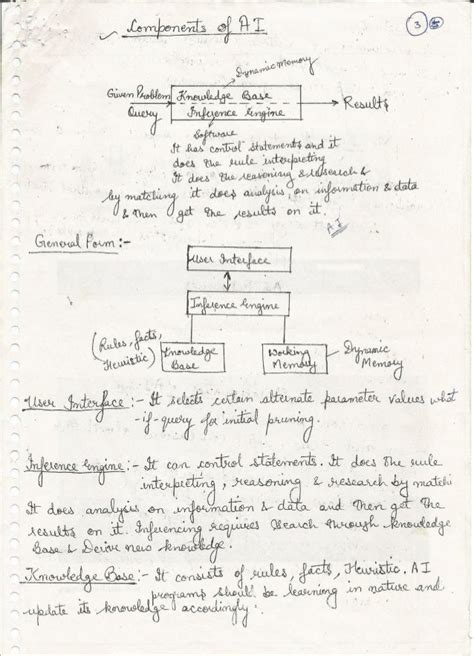 Components of AI
3
Dynamic Memory
Given Problem
Query
Knowledge Base
Inference Engine
Results
Software
It has control statements and it
does the rule interpreting
It does the reasoning & research &
by matching it does analysis on information & data
& then get the results on it.
AI
General Form:-
User Interface
Inference Engine
(Rules, facts,
Heuristic)
Knowledge
Base
Working
Memory
Dynamic
Memory
User Interface:- It selects certain alternate parameter values what
-if-query for initial pruning.
Inference Engine:- It can control statements. It does the rule
interpreting, reasoning & research by matchi
It does analysis on information & data and then get the
results on it. Inferencing requires search through knowledge
Base & Derive new knowledge.
Knowledge Base:- It consists of rules, facts, Heuristic. AI
programs should be learning in nature and
update its knowledge accordingly.